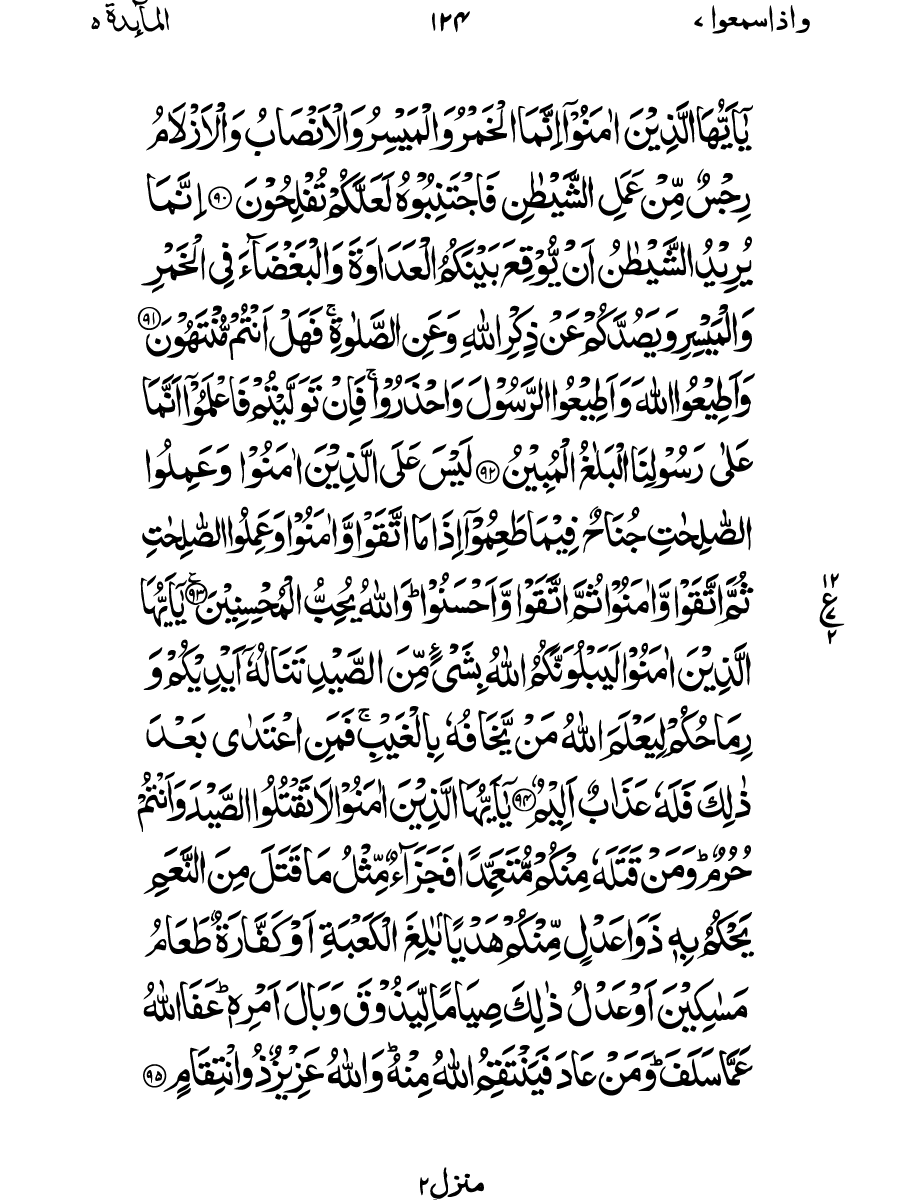 واذاسمعوا ٧ ١٢٤ المآىِٕدة ٥
يٰۤاَيُّهَا الَّذِيْنَ اٰمَنُوْۤا اِنَّمَا الْخَمْرُ وَالْمَيْسِرُ وَالْاَنْصَابُ وَالْاَزْلَامُ
رِجْسٌ مِّنْ عَمَلِ الشَّيْطٰنِ فَاجْتَنِبُوْهُ لَعَلَّكُمْ تُفْلِحُوْنَ ۝٩٠ اِنَّمَا
يُرِيْدُ الشَّيْطٰنُ اَنْ يُّوْقِعَ بَيْنَكُمُ الْعَدَاوَةَ وَالْبَغْضَآءَ فِى الْخَمْرِ
وَالْمَيْسِرِ وَيَصُدَّكُمْ عَنْ ذِكْرِ اللّٰهِ وَعَنِ الصَّلٰوةِ ۚ فَهَلْ اَنْتُمْ مُّنْتَهُوْنَ ۝٩١
وَاَطِيْعُوا اللّٰهَ وَاَطِيْعُوا الرَّسُوْلَ وَاحْذَرُوْا ۚ فَاِنْ تَوَلَّيْتُمْ فَاعْلَمُوْۤا اَنَّمَا
عَلٰى رَسُوْلِنَا الْبَلٰغُ الْمُبِيْنُ ۝٩٢ لَيْسَ عَلَى الَّذِيْنَ اٰمَنُوْا وَعَمِلُوا
الصّٰلِحٰتِ جُنَاحٌ فِيْمَا طَعِمُوْۤا اِذَا مَا اتَّقَوْا وَّاٰمَنُوْا وَعَمِلُوا الصّٰلِحٰتِ
ثُمَّ اتَّقَوْا وَّاٰمَنُوْا ثُمَّ اتَّقَوْا وَّاَحْسَنُوْا ؕ وَاللّٰهُ يُحِبُّ الْمُحْسِنِيْنَ ۝٩٣ ع يٰۤاَيُّهَا
١٢
ع ٧
٢
الَّذِيْنَ اٰمَنُوْا لَيَبْلُوَنَّكُمُ اللّٰهُ بِشَىْءٍ مِّنَ الصَّيْدِ تَنَالُهٗۤ اَيْدِيْكُمْ وَ
رِمَاحُكُمْ لِيَعْلَمَ اللّٰهُ مَنْ يَّخَافُهٗ بِالْغَيْبِ ۚ فَمَنِ اعْتَدٰى بَعْدَ
ذٰلِكَ فَلَهٗ عَذَابٌ اَلِيْمٌ ۝٩٤ يٰۤاَيُّهَا الَّذِيْنَ اٰمَنُوْا لَا تَقْتُلُوا الصَّيْدَ وَاَنْتُمْ
حُرُمٌ ؕ وَمَنْ قَتَلَهٗ مِنْكُمْ مُّتَعَمِّدًا فَجَزَآءٌ مِّثْلُ مَا قَتَلَ مِنَ النَّعَمِ
يَحْكُمُ بِهٖ ذَوَا عَدْلٍ مِّنْكُمْ هَدْيًۢا بٰلِغَ الْكَعْبَةِ اَوْ كَفَّارَةٌ طَعَامُ
مَسٰكِيْنَ اَوْ عَدْلُ ذٰلِكَ صِيَامًا لِّيَذُوْقَ وَبَالَ اَمْرِهٖ ؕ عَفَا اللّٰهُ
عَمَّا سَلَفَ ؕ وَمَنْ عَادَ فَيَنْتَقِمُ اللّٰهُ مِنْهُ ؕ وَاللّٰهُ عَزِيْزٌ ذُو انْتِقَامٍ ۝٩٥
منزل ٢